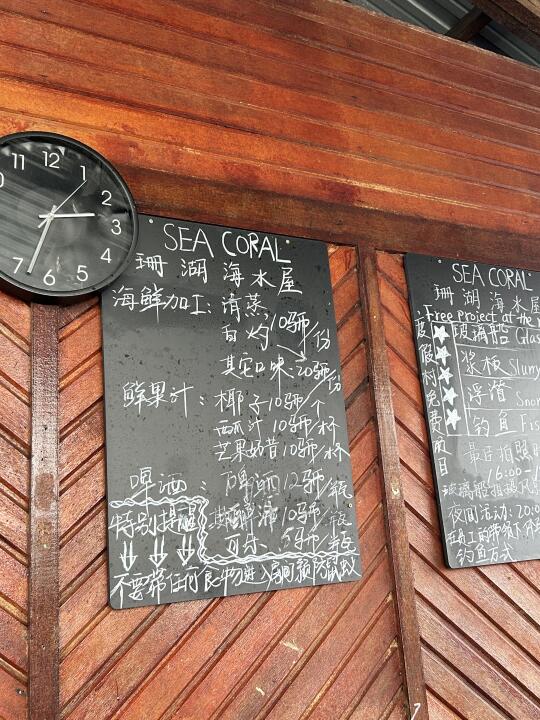 11 12 1
2
3
4
5
6
7
SEA CORAL
珊湖海水屋
海鲜加工: 清蒸,
白灼 10马币/份
其它口味:20马币/份
鲜果汁: 椰子10马币/个
西瓜汁 10马币/杯
芒果奶昔10马币/杯
啤酒: 啤酒12马币/瓶
特别提醒
10马币/瓶
不要带任何食物进入房间预防鼠蚁
SEA CORAL
珊湖海水屋
Free project at the
度假村免费项目
玻璃船 Glas
浆板
浮潜 Snor
钓鱼 Fis
最佳拍照时
16:00-1
玻璃船拍摄风景
夜间活动: 20:0
钓鱼方式